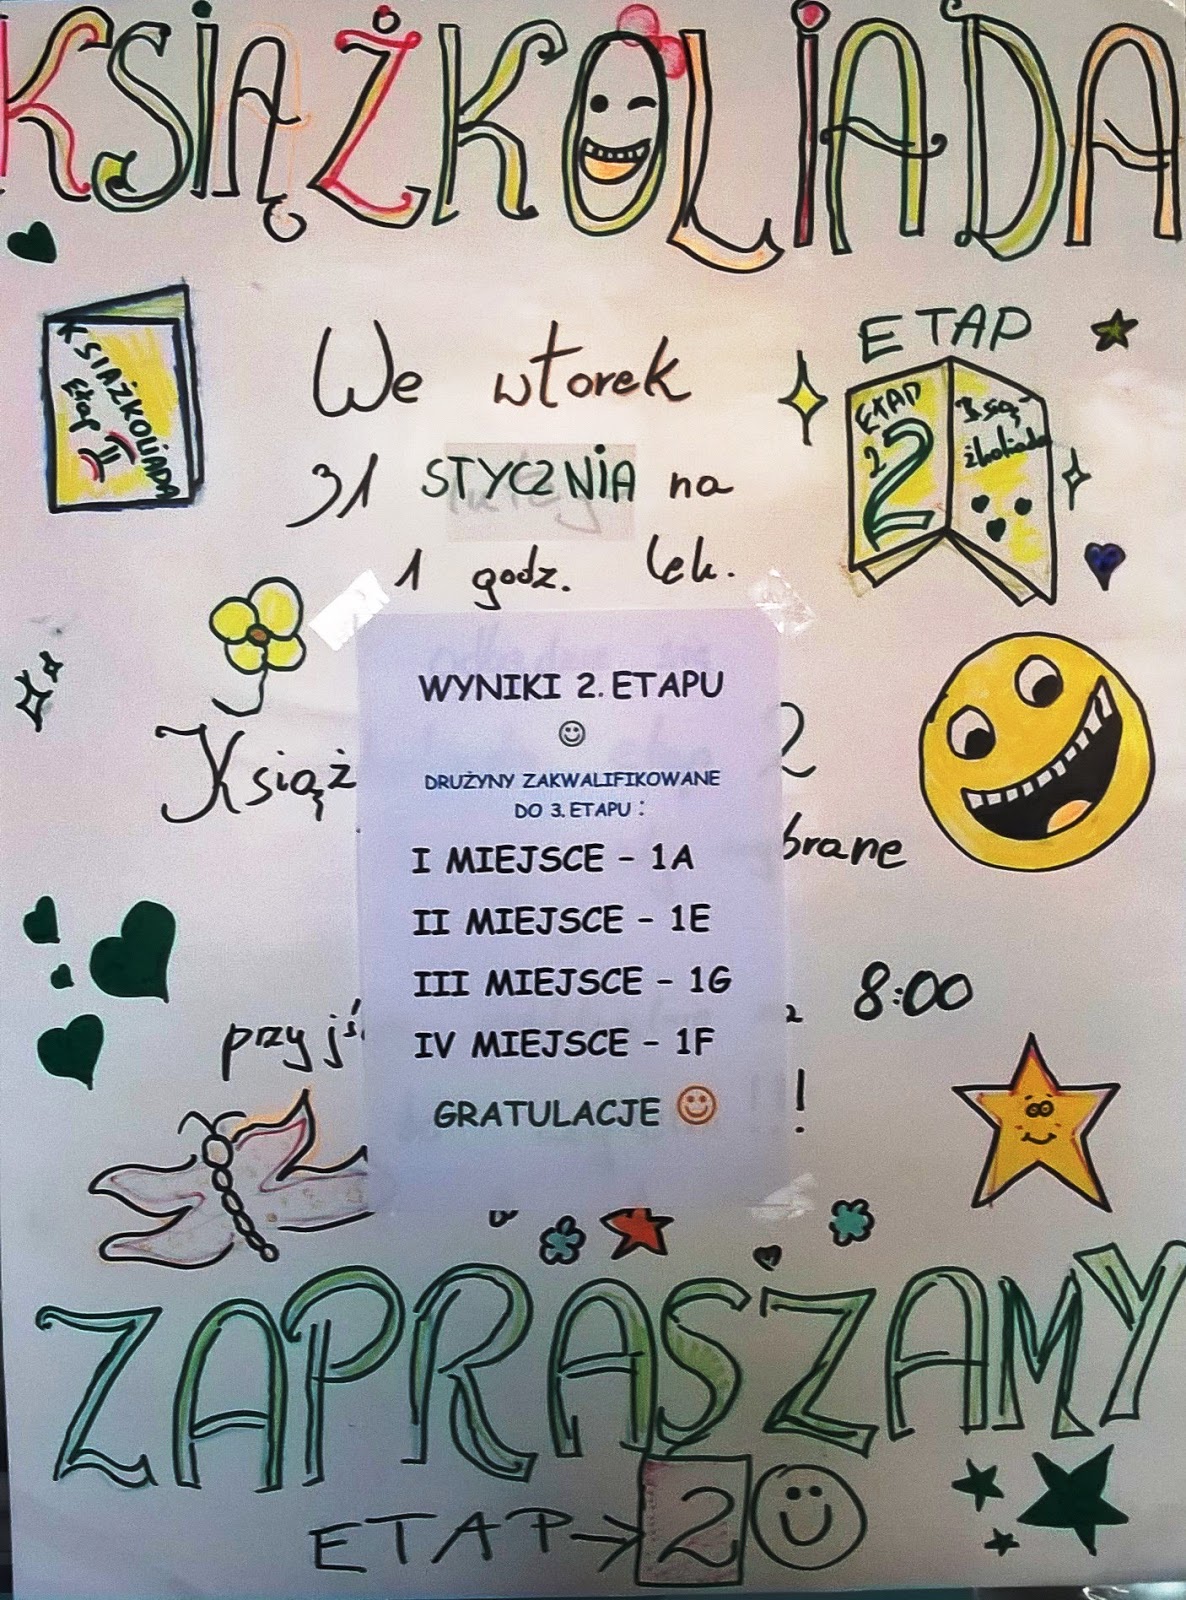 KSIĄŻKOLIADA
KSIĄŻKOLIADA
Etap II
We wtorek
31 STYCZNIA na
1 godz. lek.
ETAP
ETAP
2
2
Książkoliada
WYNIKI 2. ETAPU
DRUŻYNY ZAKWALIFIKOWANE
DO 3. ETAPU :
I MIEJSCE - 1A
II MIEJSCE - 1E
III MIEJSCE - 1G
IV MIEJSCE - 1F
GRATULACJE
Książ
2
brane
przyjś
8:00
!
ZAPRASZAMY
ETAP → 2